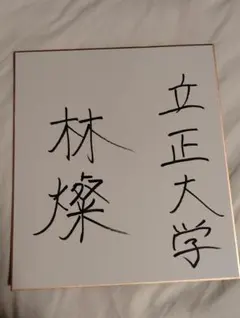 立正大学
林燦